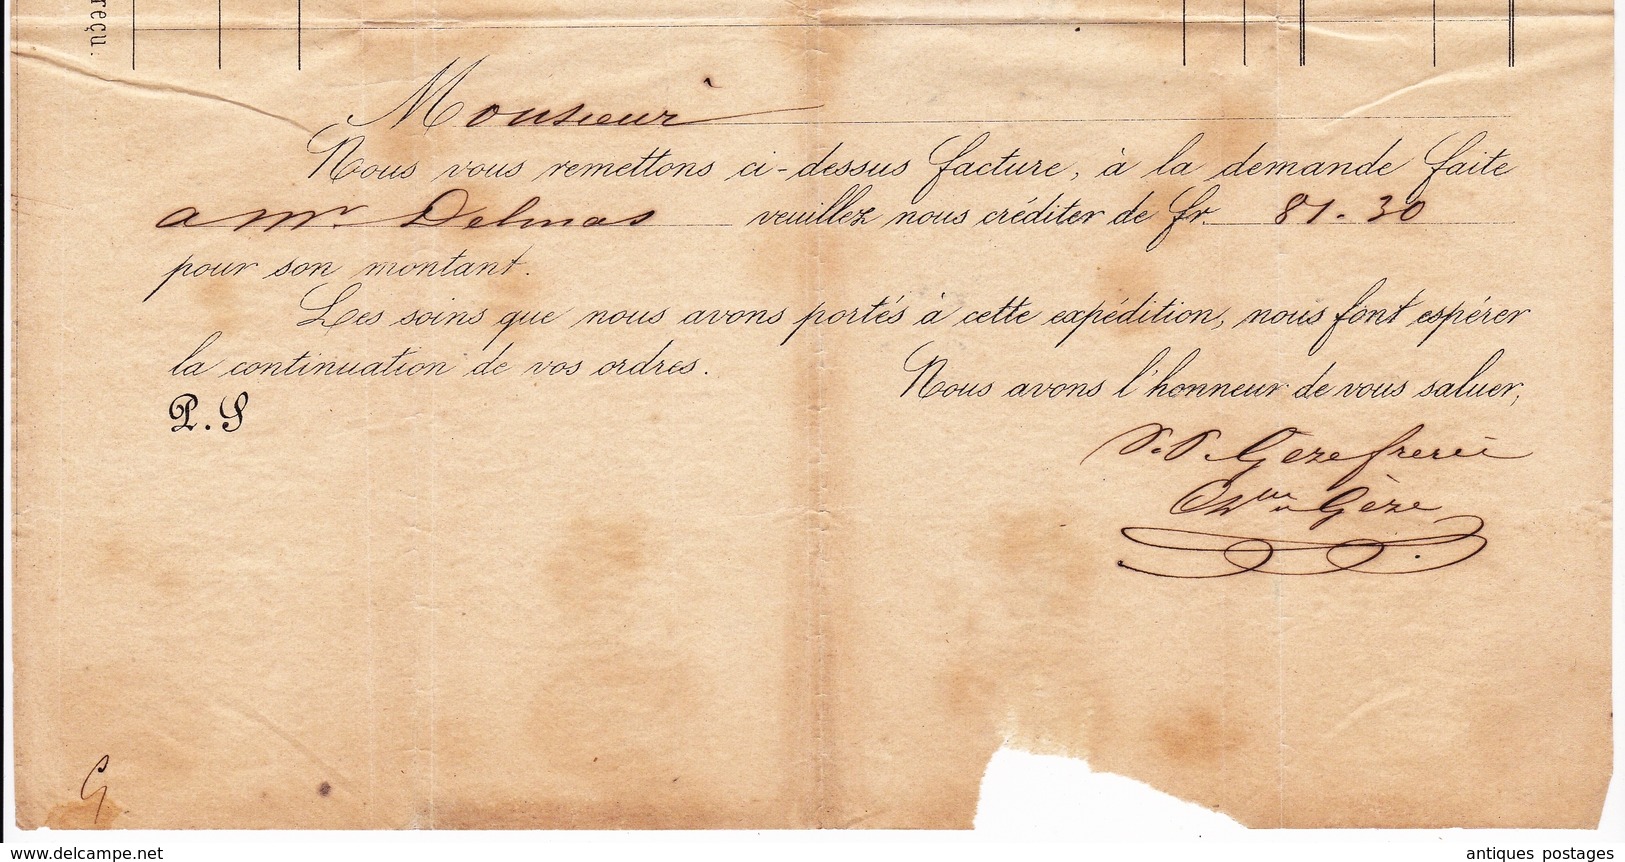 reçu.
Monsieur
Nous vous remettons ci-dessus facture, à la demande faite
a Mr Delmas veuillez nous créditer de fr. 81.30
pour son montant.
Les soins que nous avons portés à cette expédition, nous font espérer
la continuation de vos ordres.
Nous avons l'honneur de vous saluer,
P.S
Geze freres
Gèze
delcampe.net
antiques postages